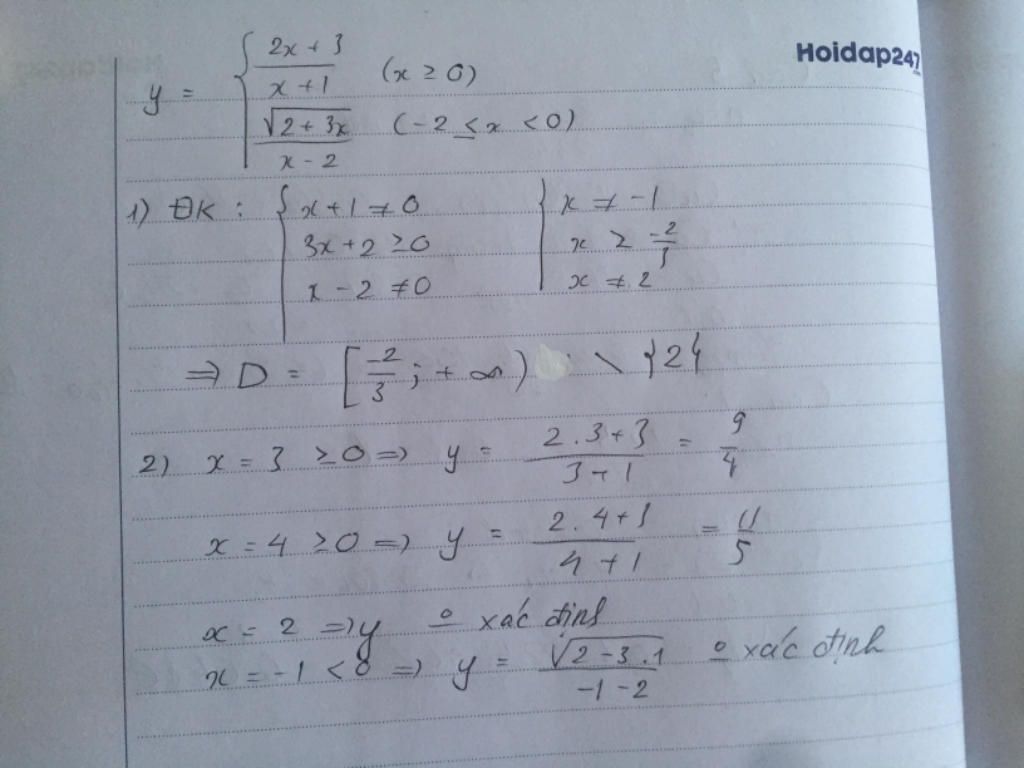 Hoidap247
y = { (2x + 3)/(x + 1) (x ≥ 0)
√(2 + 3x)/(x - 2) (-2 ≤ x < 0)
1) ĐK : { x + 1 ≠ 0 { x ≠ -1
3x + 2 ≥ 0 x ≥ -2/3
x - 2 ≠ 0 x ≠ 2
⇒ D = [-2/3 ; + ∞) \ {2}
2) x = 3 ≥ 0 ⇒ y = (2.3 + 3)/(3 + 1) = 9/4
x = 4 ≥ 0 ⇒ y = (2.4 + 3)/(4 + 1) = 11/5
x = 2 ⇒ y o xác định
x = -1 < 0 ⇒ y = √(2 - 3.1)/(-1 - 2) o xác định